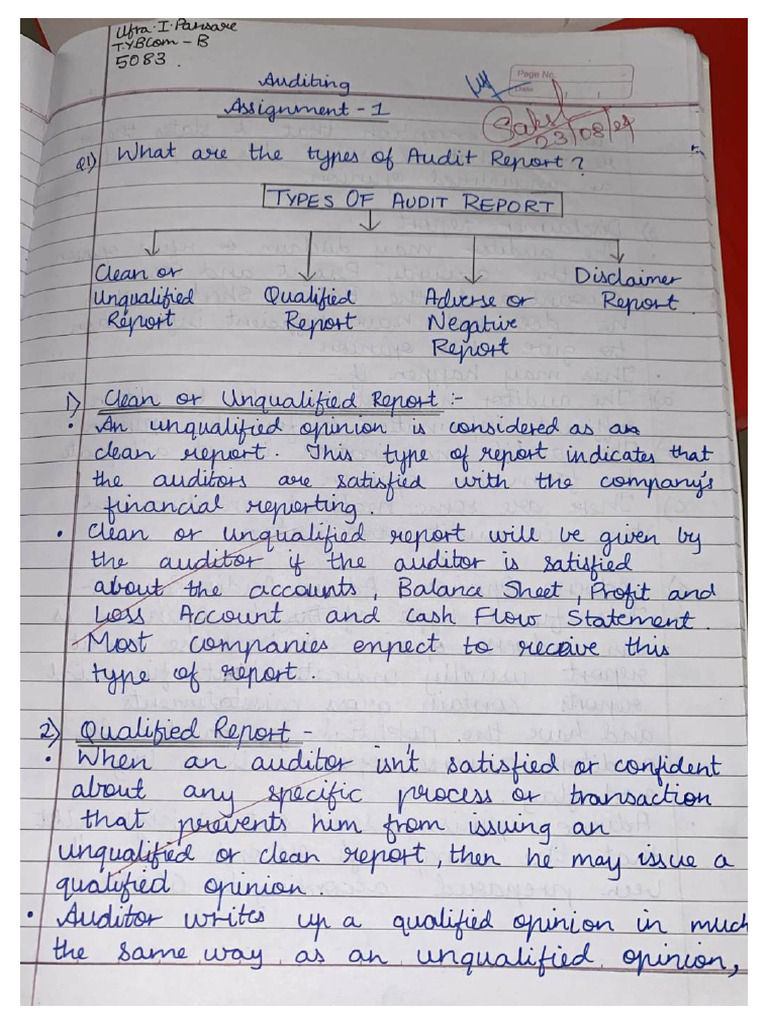 Ufra. I. Parsare
T.Y.BCom - B
5083.
Page No.
Date
Auditing
Assignment - 1
23/08/24
Q1) What are the types of Audit Report?
TYPES OF AUDIT REPORT
Clean or Unqualified Report
Qualified Report
Adverse or Negative Report
Disclaimer Report.
1) Clean or Unqualified Report :-
• An unqualified opinion is considered as an
clean report. This type of report indicates that
the auditors are satisfied with the company's
financial reporting.
• Clean or unqualified report will be given by
the auditor if the auditor is satisfied
about the accounts, Balance Sheet, Profit and
Loss Account and Cash Flow Statement.
Most companies enpect to receive this
type of report.
2) Qualified Report -
• When an auditor isn't satisfied or confident
about any specific process or transaction
that prevents him from issuing an
unqualified or clean report, then he may issue a
qualified opinion.
• Auditor writes up a qualified opinion in much
the same way as an unqualified opinion,